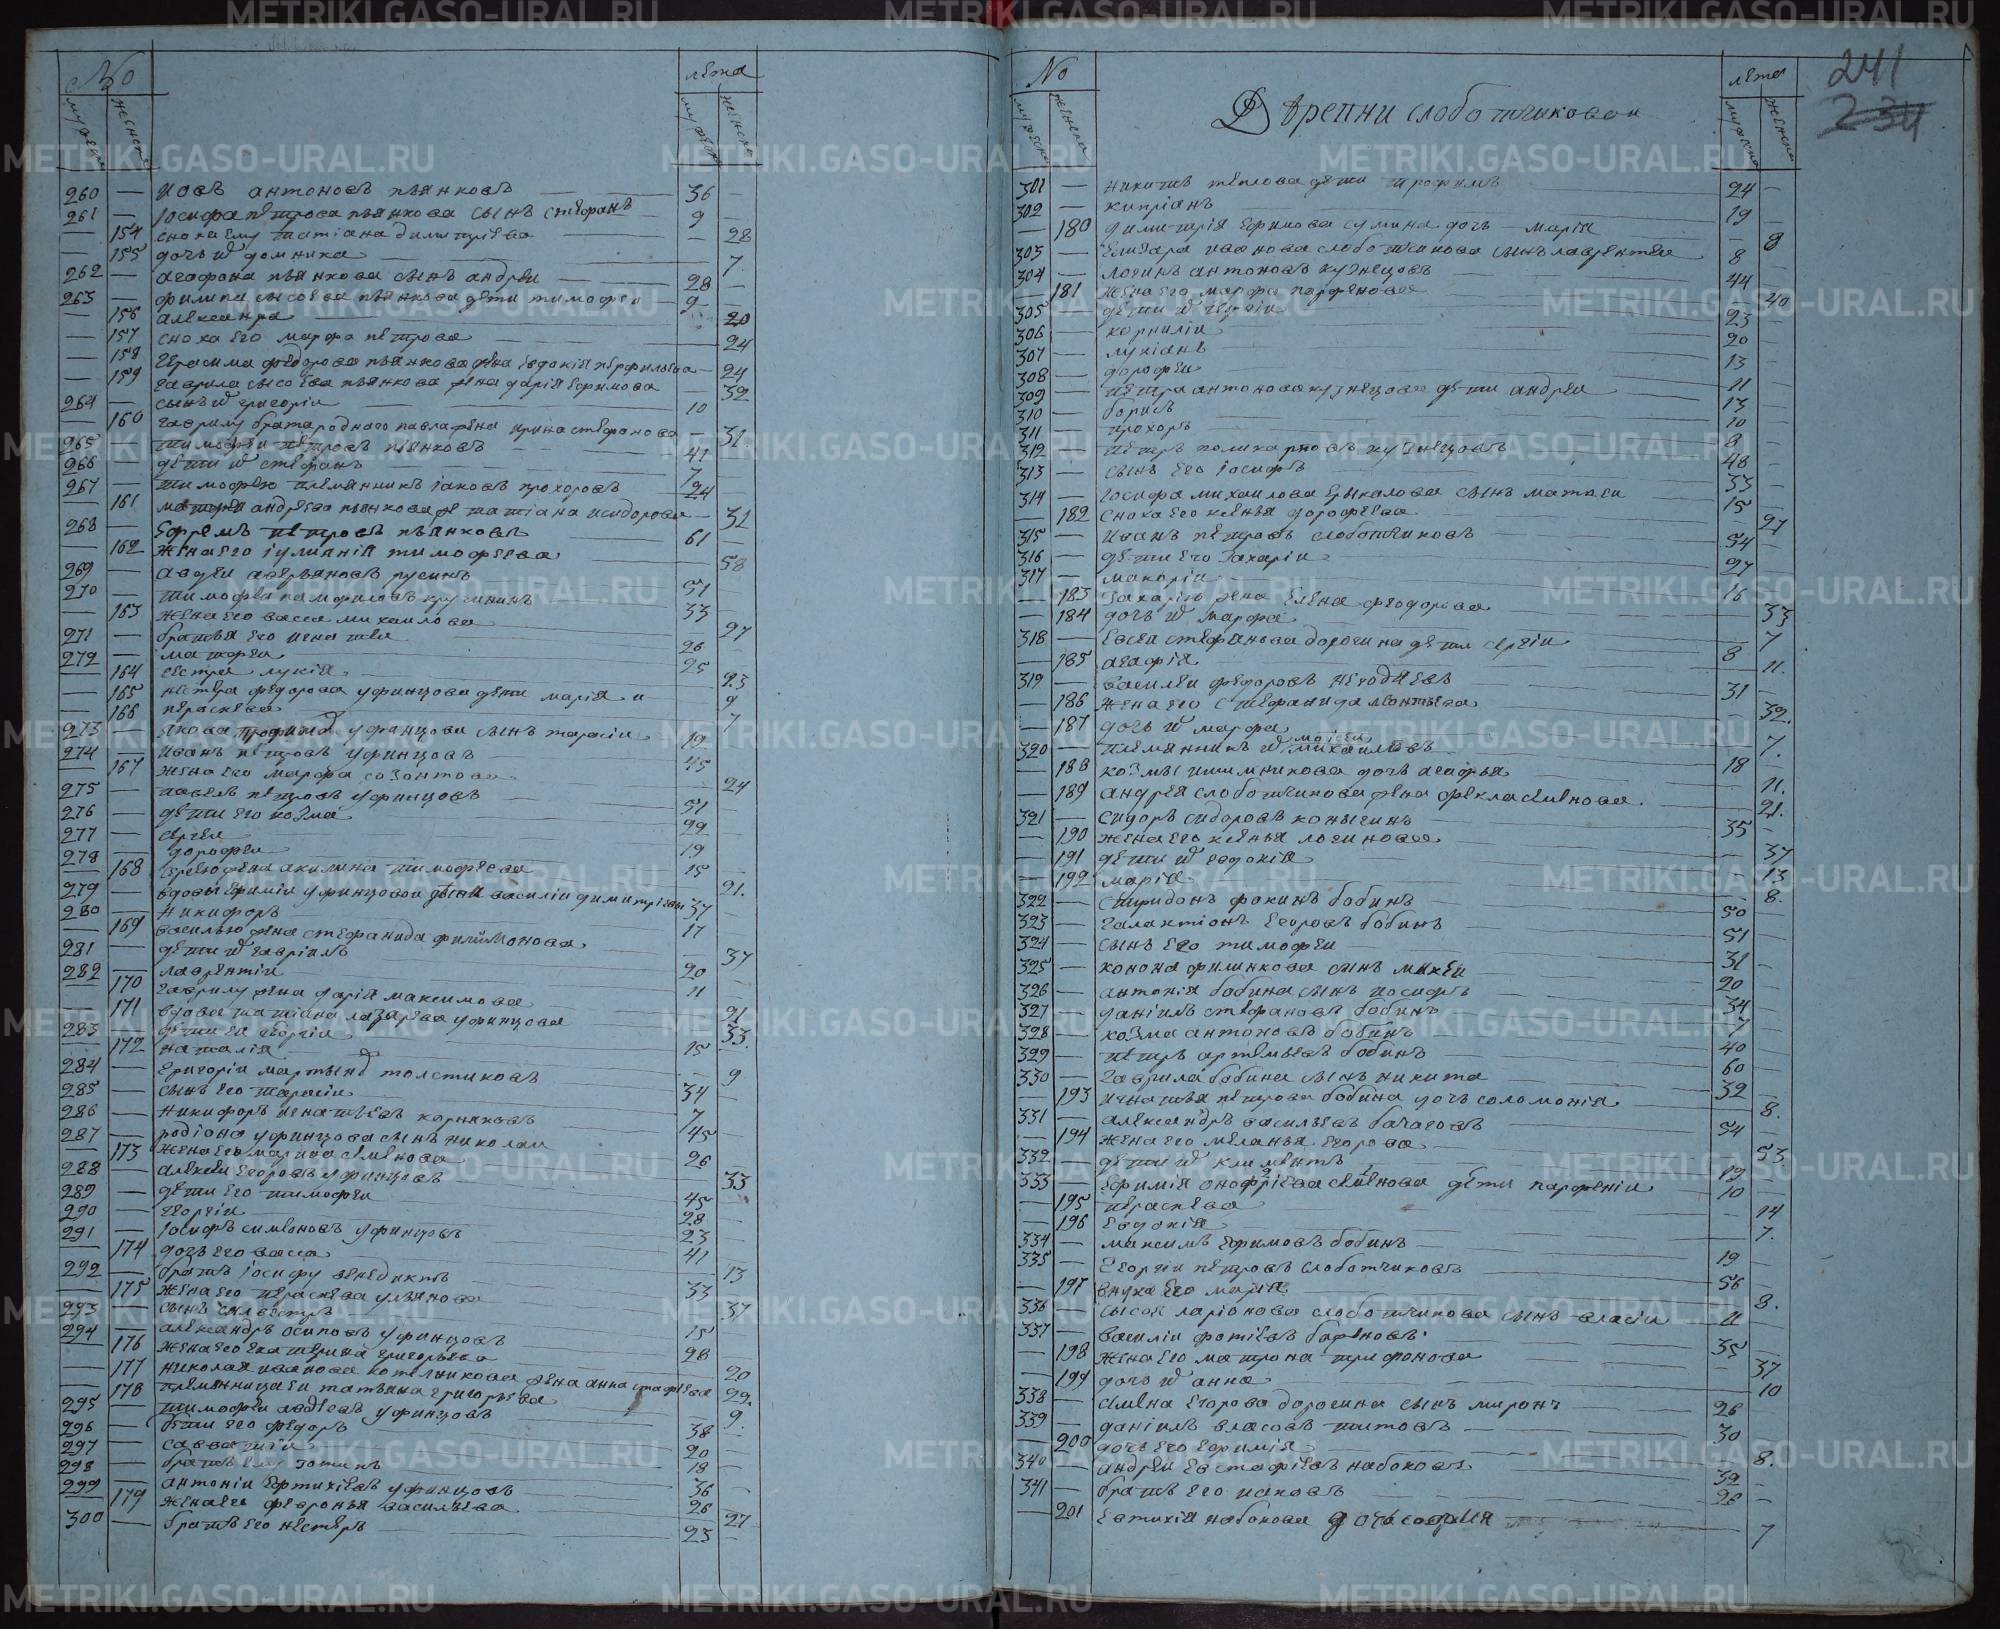 № лѣта
мужеска женска мужеска женска
260 — Иовъ антоновъ пьянковъ 36 —
261 — Іосифа петрова пьянкова сынъ стефанъ 9 —
— 154 сноха ему татіана димитріева — 28
— 155 дочь ей домника — 7
262 — агафона пьянкова сынъ андреи 28 —
263 — филипа сысоева пьянкова дети тимофеи 9 —
— 156 александра — 20
— 157 сноха его марфа петрова — 24
— 158 Герасима федорова пьянкова жена евдокія перфильева — 24
— 159 гаврила сысоева пьянкова жена дарія ефимова — 32
264 — сынъ ей григоріи 10
— 160 гаврилу брата роднаго павла жена ирина стефанова — 31
265 — тимофеи петровъ пьянковъ 41 —
266 — дети ей стефанъ 7 —
267 — тимофею племянникъ іаковъ прохоровъ 24 —
— 161 андрева пьянкова же татіана исидорова — 31
268 — Ефремъ петровъ пьянковъ 61 —
— 162 жена его іулианія тимофеева — 58
269 — авдеи аверьяновъ русинъ 51
270 — тимофеи памфиловъ кручининъ 33 —
— 163 жена его васса михаилова — 27
271 — братья его игнатеи 26 —
272 — матфеи 25
— 164 сестра лукія — 23
— 165 нестера федорова уфинцова дети марія и — 9
— 166 параскева — 7
273 — якова трофимова уфинцова сынъ тарасіи 19
274 — иванъ петровъ уфинцовъ 45
— 167 жена его марфа созонтова — 24
275 — павелъ петровъ уфинцовъ 51
276 — дети его козма 22
277 — сергеи 19
278 — дорофеи 15 —
— 168 сергею жена акилина тимофеева — 21.
279 — вдовы ефиміи уфинцовои дети василіи димитріевы 37
280 — Никифоръ 17
— 169 василью жена стефанида филимонова — 37
281 — дети ей гавріилъ 20
282 — лаврентіи 11 —
— 170 гаврилу жена дарія максимова — 21
— 171 вдова татіана лазарева уфинцова — 33.
283 — дети ея георгіи 15
— 172 наталія — 9
284 — Григоріи мартыновъ толстиковъ 34
285 — сынъ его тарасіи 7
286 — Никифоръ игнатьевъ корняковъ 45 —
287 — родіона уфинцова сынъ николаи 26
— 173 жена его марина семенова — 33
288 — алексеи егоровъ уфинцовъ 45 —
289 — дети его тимофеи 28 —
290 — георгіи 23
291 — Іосифъ симеоновъ уфинцовъ 41
— 174 дочь его васса — 13
292 — братъ іосифу венедиктъ 33
— 175 жена его параскева ульянова — 37
293 — сынъ силвестръ 15
294 — александръ осиповъ уфинцовъ 28
— 176 жена его екатерина григорьева — 20
— 177 николая иванова котельникова жена анна — 29.
— 178 племянница ей татьяна григорьева — 9.
295 — тимофеи авдеевъ уфинцовъ 38
296 — дети его федоръ 20 —
297 — савватіи 18
298 — братъ ему 36
299 — антоніи евтихіевъ уфинцовъ 26 —
— 179 жена его февронья васильева — 27
300 — братъ его нестеръ 23 —
№ Дѣревни слоботчиковои лѣта 241
234
мужеска женска мужеска женска
301 — никиты теплова дети трофимъ 24 —
302 — кипріанъ 19
— 180 димитрія ефимова сумина дочь марія — 8
303 — Елизара иванова слоботчикова сынъ лаврентеи 8
304 — логинъ антоновъ кузнецовъ 44
— 181 жена его марфа парфенова — 40
305 — дети ей георгіи 23 —
306 — корниліи 20 —
307 — лукіанъ 13 —
308 — дорофеи 11 —
309 — петра антонова кузнецова дети андреи 13 —
310 — борисъ 10
311 — прохоръ 8 —
312 — петръ поликарповъ кузнецовъ 48 —
313 — сынъ его іосифъ 33 —
314 — Іосифа михаилова ерыкалова сынъ матвеи 15 —
— 182 сноха его ксенья дорофеева — 21
315 — иванъ петровъ слоботчиковъ 54
316 — дети его захаріи 27
317 — макаріи 16
— 183 захарію жена елена феодорова — 33
— 184 дочь ей марфа — 7
318 — евсеи стефанова дорогина дети сергіи 8
— 185 агафія — 11.
319 — василеи федоровъ негодяевъ 31
— 186 жена его стефанида леонтьева — 32.
— 187 дочь ей марфа — 7.
320 — племянникъ ей моісеи михаиловъ 18
— 188 козмы дочь агафья — 11.
— 189 андрея слоботчикова жена фекла семенова — 21.
321 — сидоръ сидоровъ коныгинъ 35 —
— 190 жена его ксенья логинова — 37
— 191 дети ей евдокія — 13
— 192 марія — 8.
322 — спиридонъ фокинъ бобинъ 50
323 — галактіонъ егоровъ бобинъ 51
324 — сынъ его тимофеи 31 —
325 — конона филинкова сынъ михеи 20 —
326 — антонія бобина сынъ иосифъ 34
327 — даніилъ стефановъ бобинъ 7
328 — козма антоновъ бобинъ 40
329 — петръ артемьевъ бобинъ 60
330 — гаврила бобина сынъ никита 32 —
— 193 игнатья петрова бобина дочь соломонія — 8.
331 — александръ васильевъ богатовъ 54
— 194 жена его меланья егорова — 53.
332 — дети ей климентъ 19
333 — ефимія онофріева семенова дети парфеніи 10
— 195 параскева — 14
— 196 евдокія — 7.
334 — максимъ ефимовъ бобинъ 19
335 — Георгіи петровъ слоботчиковъ 56
— 197 внука его марія — 8.
336 — сысоя ларіонова слоботчикова сынъ власіи 11
337 — василіи фотіевъ баженовъ 35 —
— 198 жена его матрона трифонова — 37
— 199 дочь ей анна — 10
338 — семена егорова дорогина сынъ миронъ 26
339 — даніилъ власовъ титовъ 30
— 200 дочь его ефимія — 8.
340 — андреи евстафіевъ набоковъ 32
341 — братъ его иаковъ 28 —
— 201 евтихія набокова дочь софія — 7
METRIKI.GASO-URAL.RU